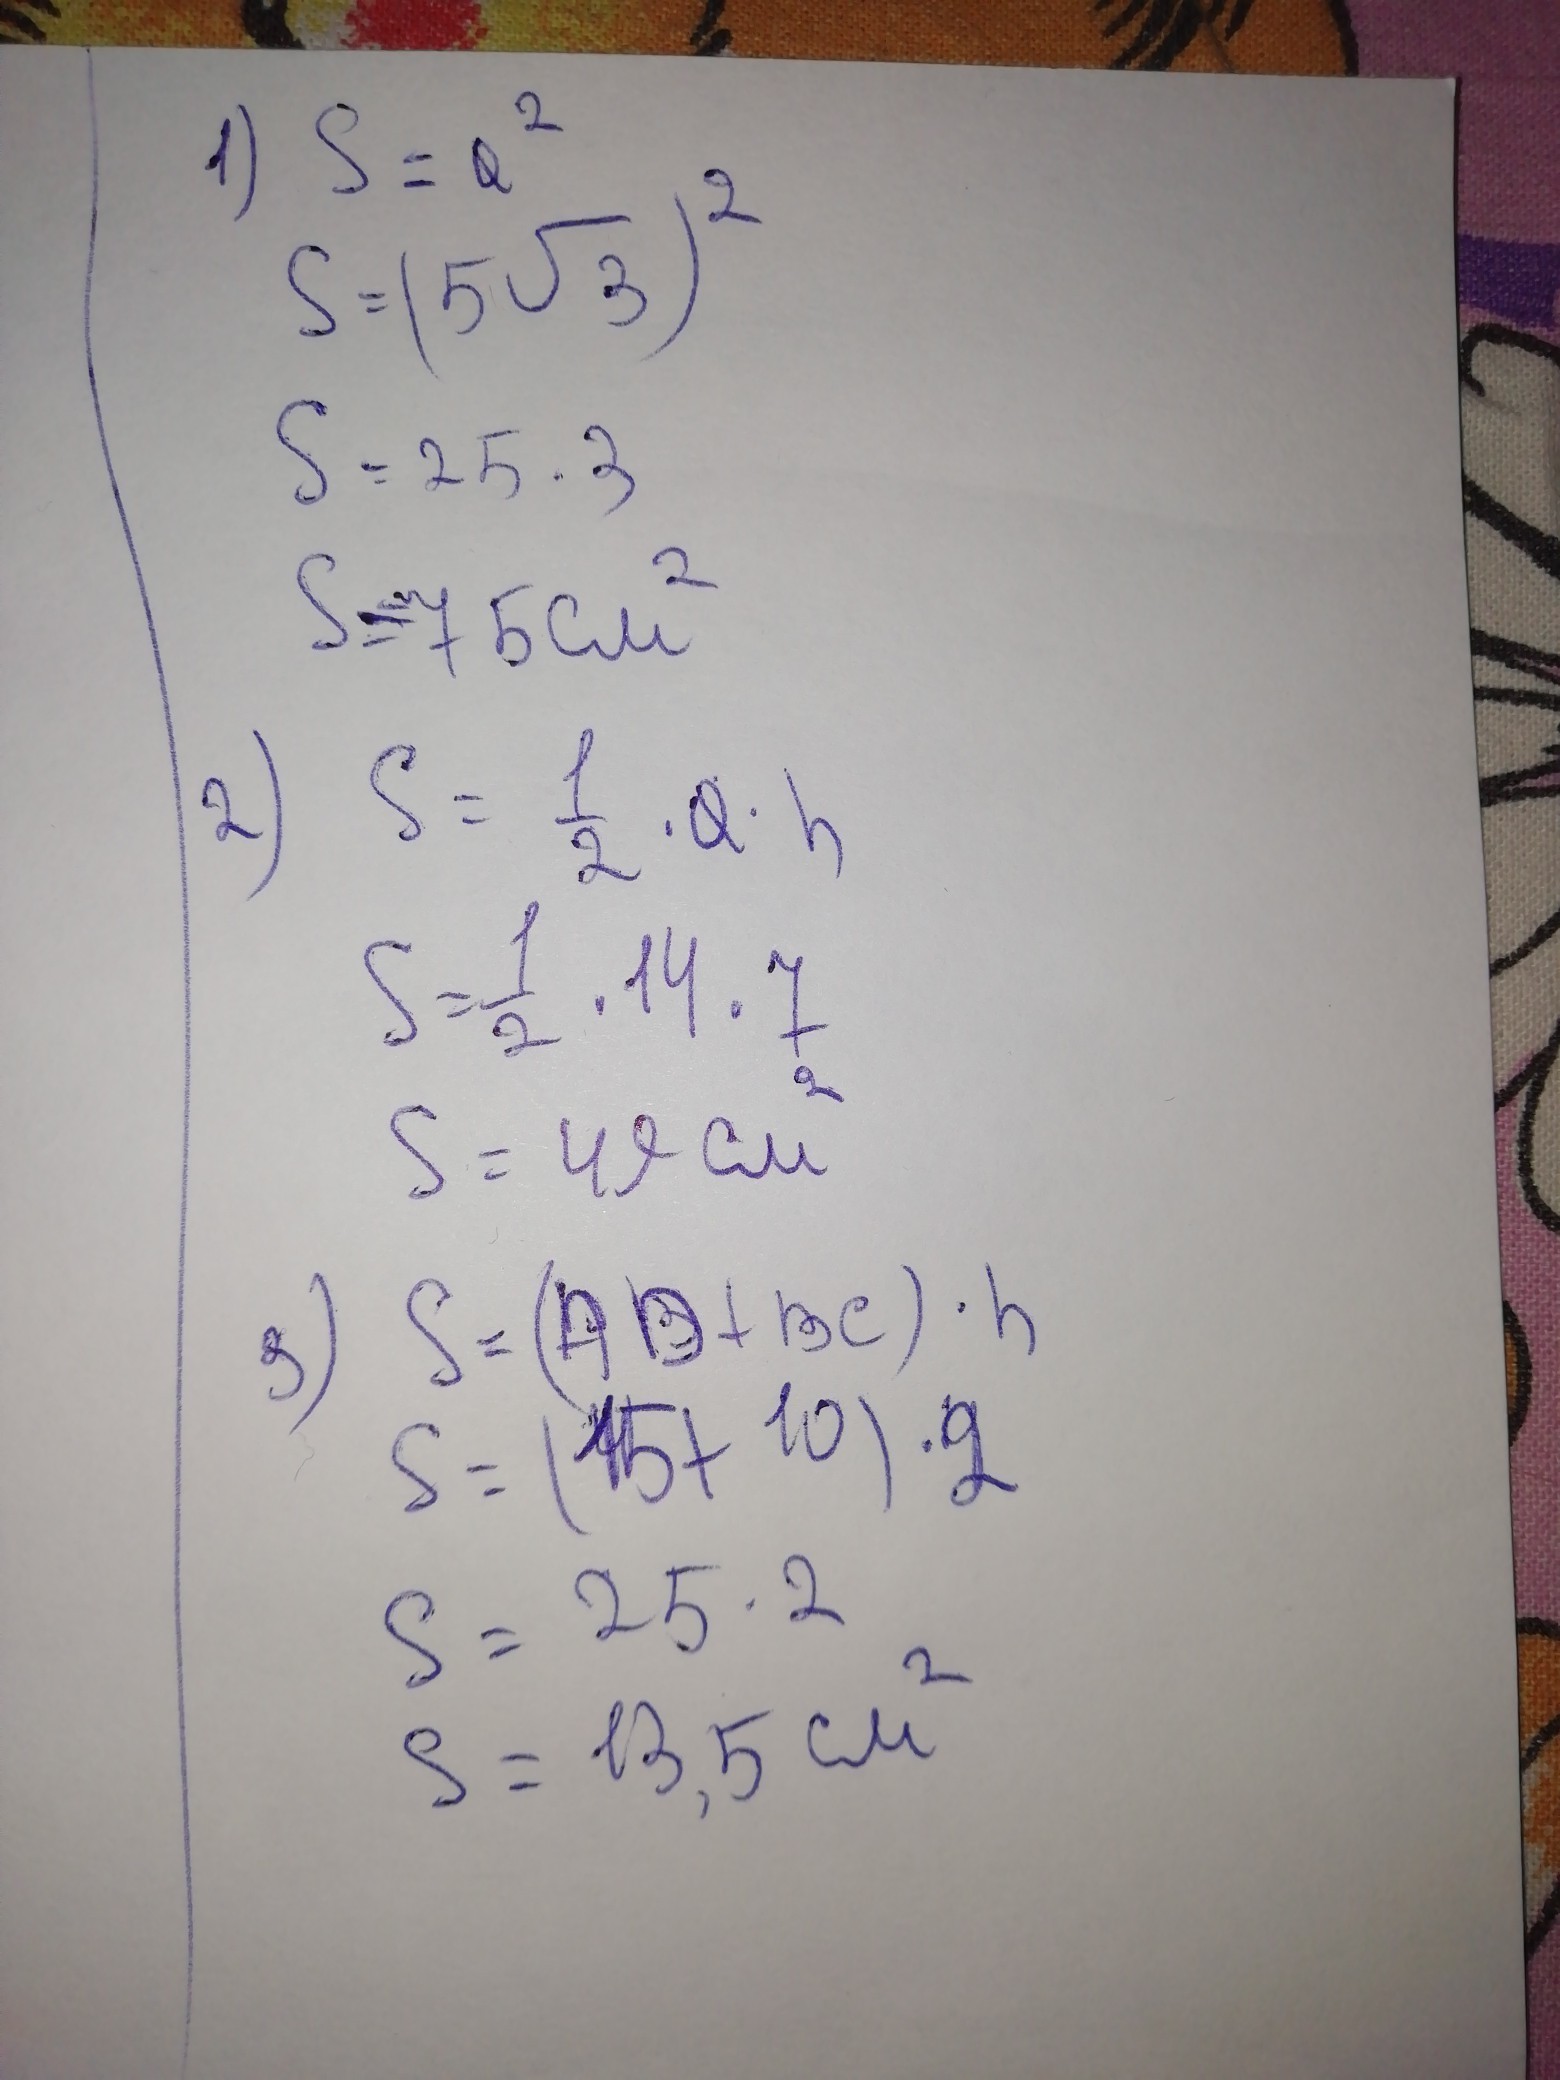 1) S = a²
S = (5√3)²
S = 25 · 3
S = 75 см²
2) S = 1/2 · a · h
S = 1/2 · 14 · 7
S = 49 см²
3) S = (AD + BC) · h
S = (15 + 10) · 2
S = 25 · 2
S = 13,5 см²